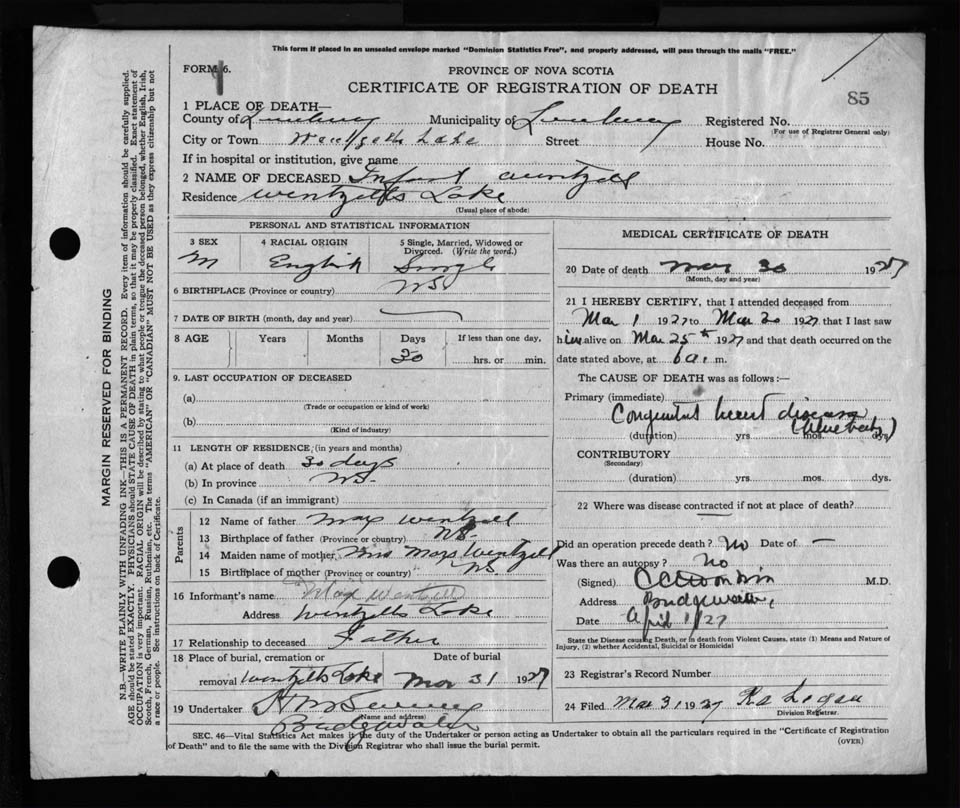 This form if placed in an unsealed envelope marked "Dominion Statistics Free", and properly addressed, will pass through the mails "FREE."
FORM 6.
PROVINCE OF NOVA SCOTIA
CERTIFICATE OF REGISTRATION OF DEATH
85
1 PLACE OF DEATH—
County of Lunenburg Municipality of Lunenburg Registered No.
(For use of Registrar General only)
City or Town Lake Street House No.
If in hospital or institution, give name
2 NAME OF DECEASED Infant Wentzell
Residence Wentzells Lake
(Usual place of abode)
PERSONAL AND STATISTICAL INFORMATION
3 SEX 4 RACIAL ORIGIN 5 Single, Married, Widowed or Divorced. (Write the word.)
M English Single
6 BIRTHPLACE (Province or country) NS
7 DATE OF BIRTH (month, day and year)
8 AGE Years Months Days If less than one day,
hrs. or min.
9. LAST OCCUPATION OF DECEASED
(a)
(Trade or occupation or kind of work)
(b)
(Kind of industry)
11 LENGTH OF RESIDENCE (in years and months)
(a) At place of death 30 days
(b) In province NS.
(c) In Canada (if an immigrant)
Parents
12 Name of father Max Wentzell
13 Birthplace of father (Province or country) NS.
14 Maiden name of mother Mrs Max Wentzell
15 Birthplace of mother (Province or country) NS
16 Informant's name Max Wentzell
Address Wentzells Lake
17 Relationship to deceased Father
18 Place of burial, cremation or removal Wentzells Lake Date of burial Mar 31 1927
19 Undertaker
(Name and address)
Bridgewater
MEDICAL CERTIFICATE OF DEATH
20 Date of death Mar 30 1927
(Month, day and year)
21 I HEREBY CERTIFY, that I attended deceased from
Mar 1 1927 to Mar 1927 that I last saw
him alive on Mar 25th 1927 and that death occurred on the
date stated above, at 6 a. m.
The CAUSE OF DEATH was as follows:—
Primary (immediate)
Congenital heart disease
(blue baby)
(duration) yrs. mos. dys.
CONTRIBUTORY
(Secondary)
(duration) yrs. mos. dys.
22 Where was disease contracted if not at place of death?
Did an operation precede death? No Date of —
Was there an autopsy? No
(Signed) M.D.
Address Bridgewater,
Date April 1/27
State the Disease causing Death, or in death from Violent Causes, state (1) Means and Nature of
Injury, (2) whether Accidental, Suicidal or Homicidal
23 Registrar's Record Number
24 Filed Mar 31 1927 Logan
Division Registrar.
SEC. 46—Vital Statistics Act makes it the duty of the Undertaker or person acting as Undertaker to obtain all the particulars required in the "Certificate of Registration
of Death" and to file the same with the Division Registrar who shall issue the burial permit.
(OVER)
MARGIN RESERVED FOR BINDING
N.B.—WRITE PLAINLY WITH UNFADING INK—THIS IS A PERMANENT RECORD. Every item of information should be carefully supplied.
AGE should be stated EXACTLY. PHYSICIANS should STATE CAUSE OF DEATH in plain terms, so that it may be properly classified. Exact statement of
OCCUPATION is very important. RACIAL ORIGIN will be described by stating to what people or tongue the deceased person belonged, whether English, Irish,
Scotch, French, German, Russian, Ruthenian, etc. The terms "AMERICAN" OR "CANADIAN" MUST NOT BE USED as they express citizenship but not
a race or people. See instructions on back of Certificate.